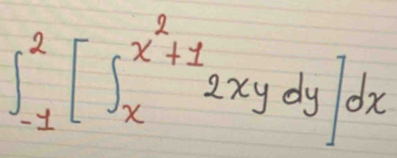 ∫_{-1}^{2} [ ∫_{x}^{x^2+1} 2xy dy ] dx